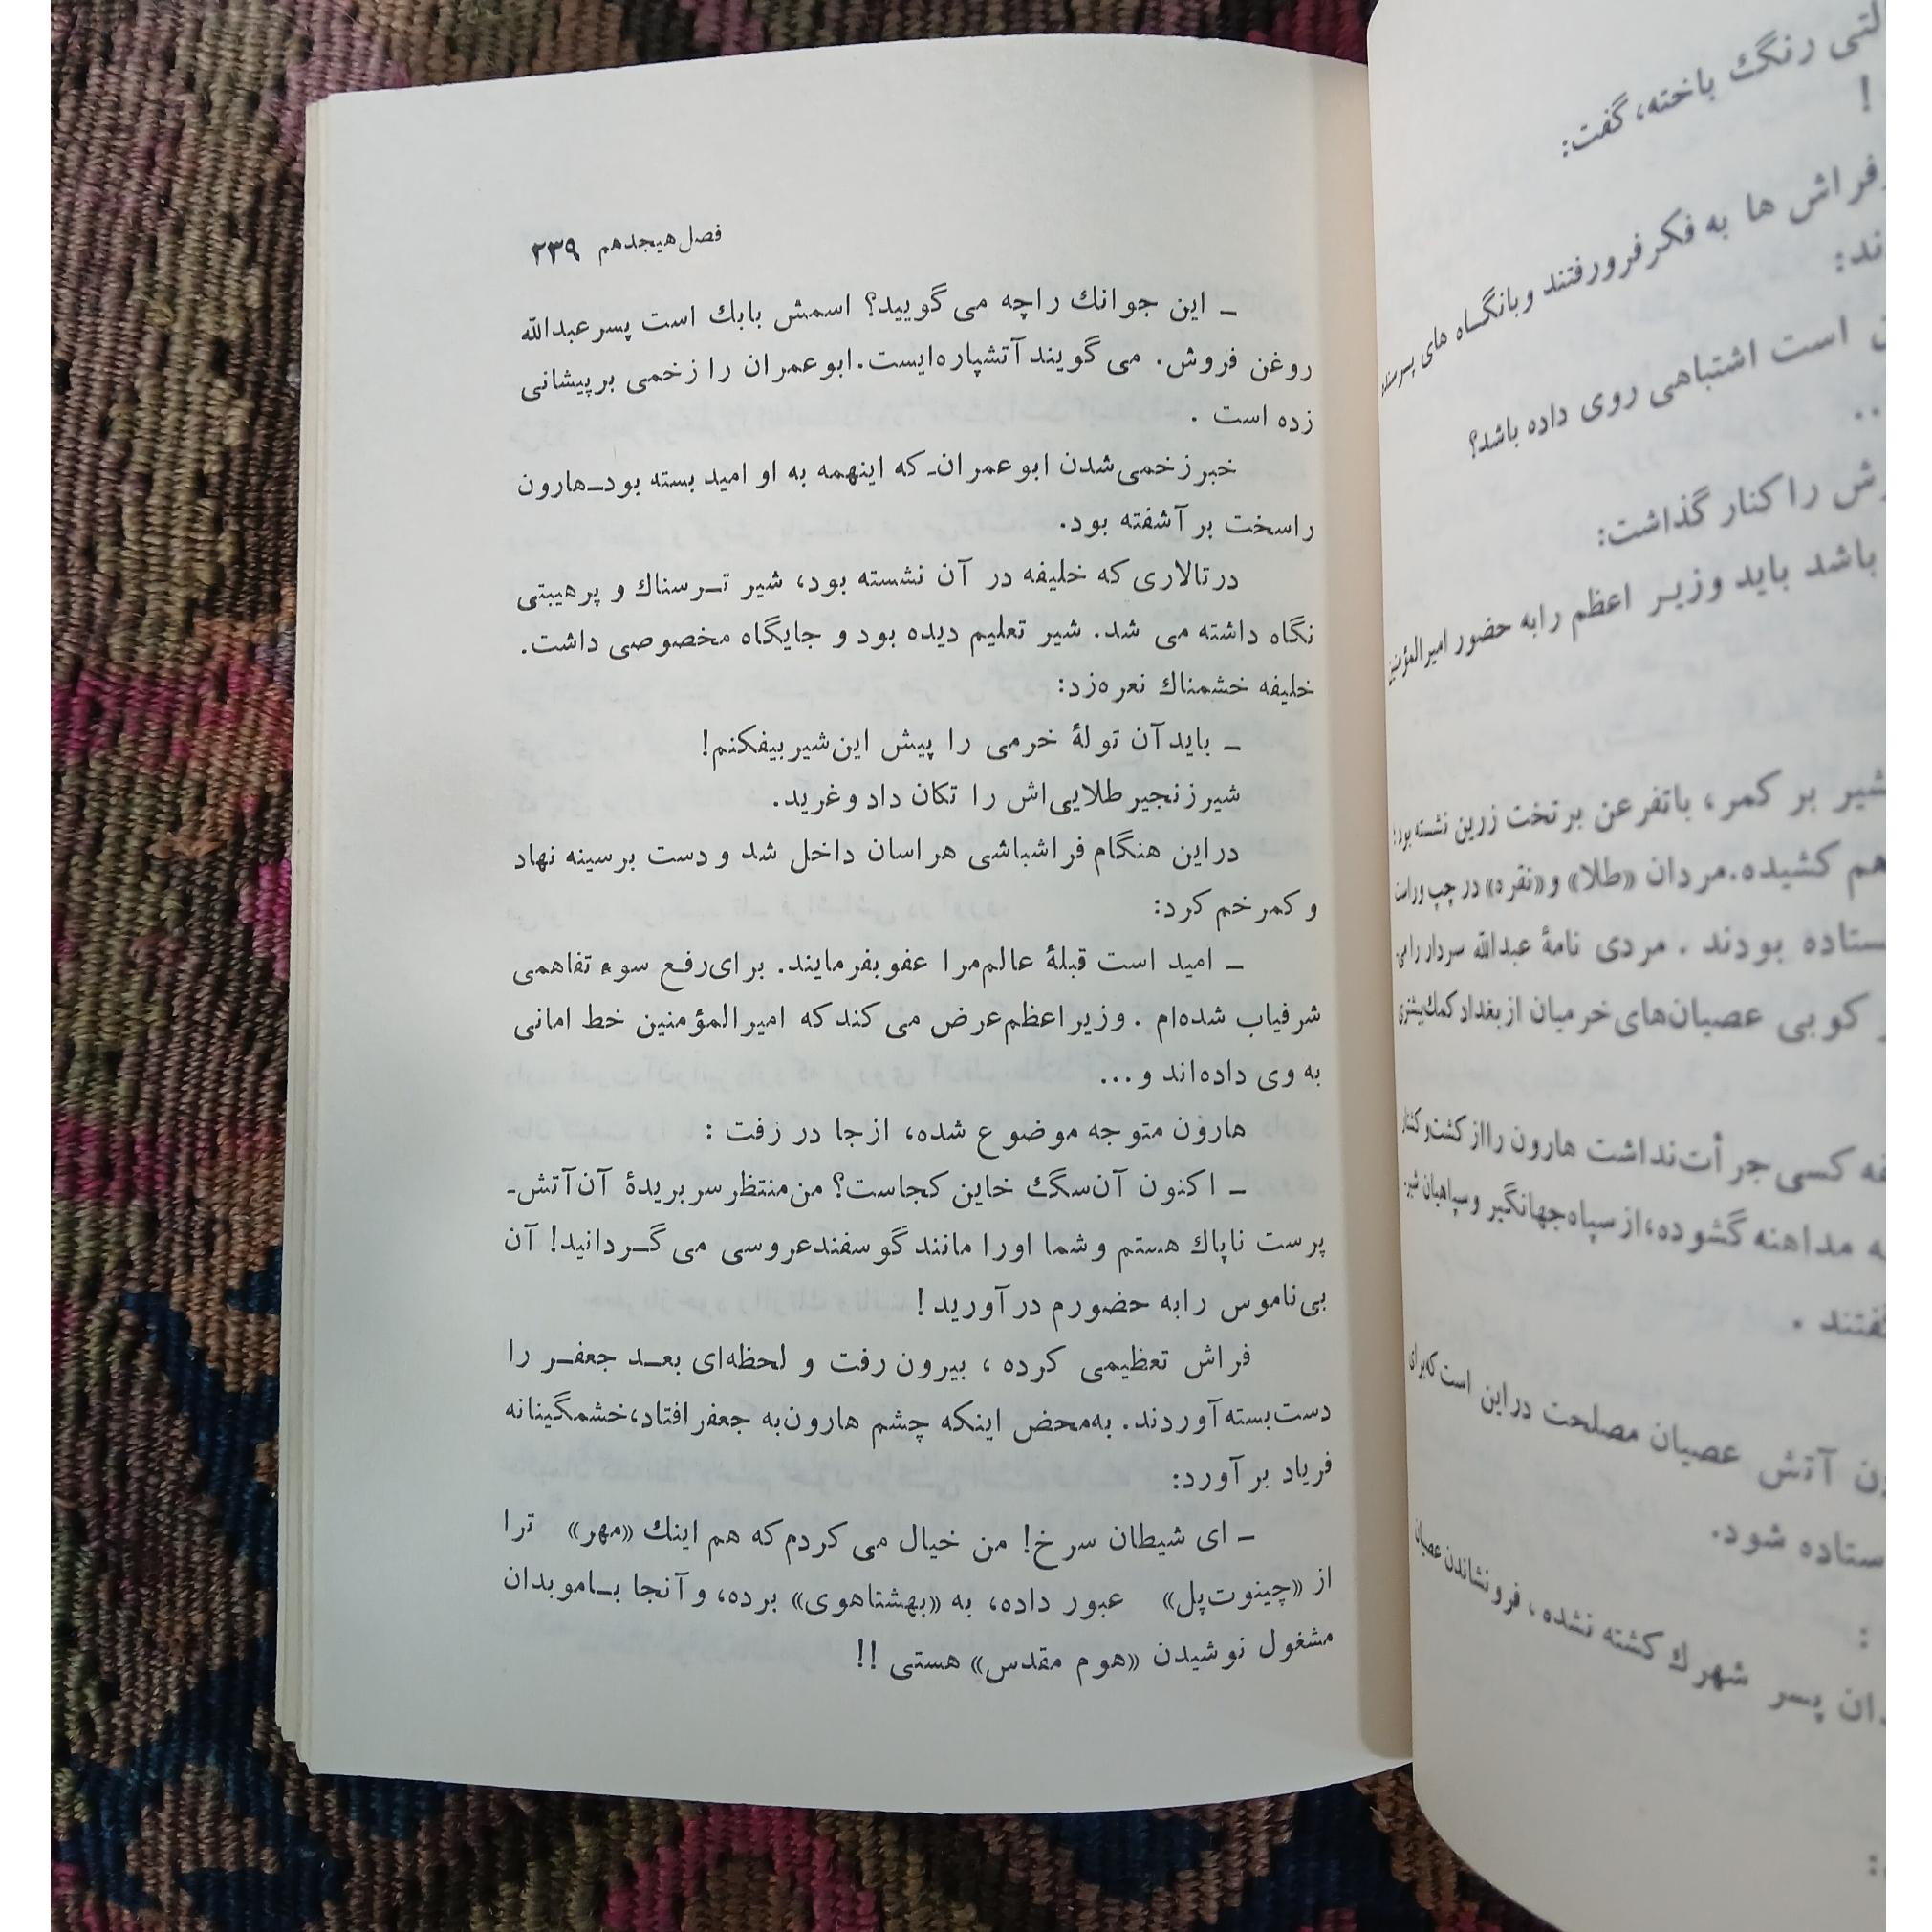 فصل هیجدهم ۲۳۹
ـ این جوانك راچه می گویید؟ اسمش بابك است پسر عبدالله
روغن فروش. می گویند آتشپاره‌ایست. ابوعمران را زخمی برپیشانی
زده است .
خبر زخمی شدن ابوعمران ـ که اینهمه به او امید بسته بود ـ هارون
راسخت بر آشفته بود.
درتالاری که خلیفه در آن نشسته بود، شیر تـرسناك و پرهیبتی
نگاه داشته می شد. شیر تعلیم دیده بود و جایگاه مخصوصی داشت.
خلیفه خشمناك نعره‌زد:
ـ باید آن تولهٔ خرمی را پیش این شیر بیفکنم!
شیر زنجیر طلایی‌اش را تکان داد و غرید.
دراین هنگام فراشباشی هراسان داخل شد و دست برسینه نهاد
و کمر خم کرد:
ـ امید است قبلهٔ عالم مرا عفو بفرمایند. برای رفع سوء تفاهمی
شرفیاب شده‌ام . وزیر اعظم عرض می کند که امیرالمؤمنین خط امانی
به وی داده‌اند و...
هارون متوجه موضوع شده، ازجا در رفت :
ـ اکنون آن سگ خاین کجاست؟ من منتظر سر بریدهٔ آن آتش‌ـ
پرست ناپاك هستم و شما اورا مانند گوسفند عروسی می گـردانید! آن
بی ناموس رابه حضورم در آورید !
فراش تعظیمی کرده ، بیرون رفت و لحظه‌ای بعـد جعفـر را
دست بسته آوردند. به‌محض اینکه چشم هارون به جعفر افتاد، خشمگینانه
فریاد بر آورد:
ـ ای شیطان سرخ! من خیال می کردم که هم اینك «مهر» ترا
از «چینوت‌پل» عبور داده، به «بهشتاهوی» برده، و آنجا بـا موبدان
مشغول نوشیدن «هوم مقدس» هستی !!
رنگ باخته، گفت:
!
فراش ها به فکر فرورفتند و بانگاه های
است اشتباهی روی داده باشد؟
را کنار گذاشت:
باشد باید وزیـر اعظم رابه حضور امیرالمؤمنین
بر کمر، باتفرعن برتخت زرین نشسته بود:
هم کشیده. مردان «طلا» و «نقره» در چپ وراست
بودند . مردی نامهٔ عبدالله سردار رامی
کوبی عصیان‌های خرمیان از بغداد کمك بیشتری
کسی جرأت نداشت هارون رااز کشت و کشتار
مداهنه گشوده، از سپاه جهانگیر و سپاهیان
آتش عصیان مصلحت دراین است که برای
شود.
:
پسر شهرك کشته نشده ، فرونشاندن عصیان